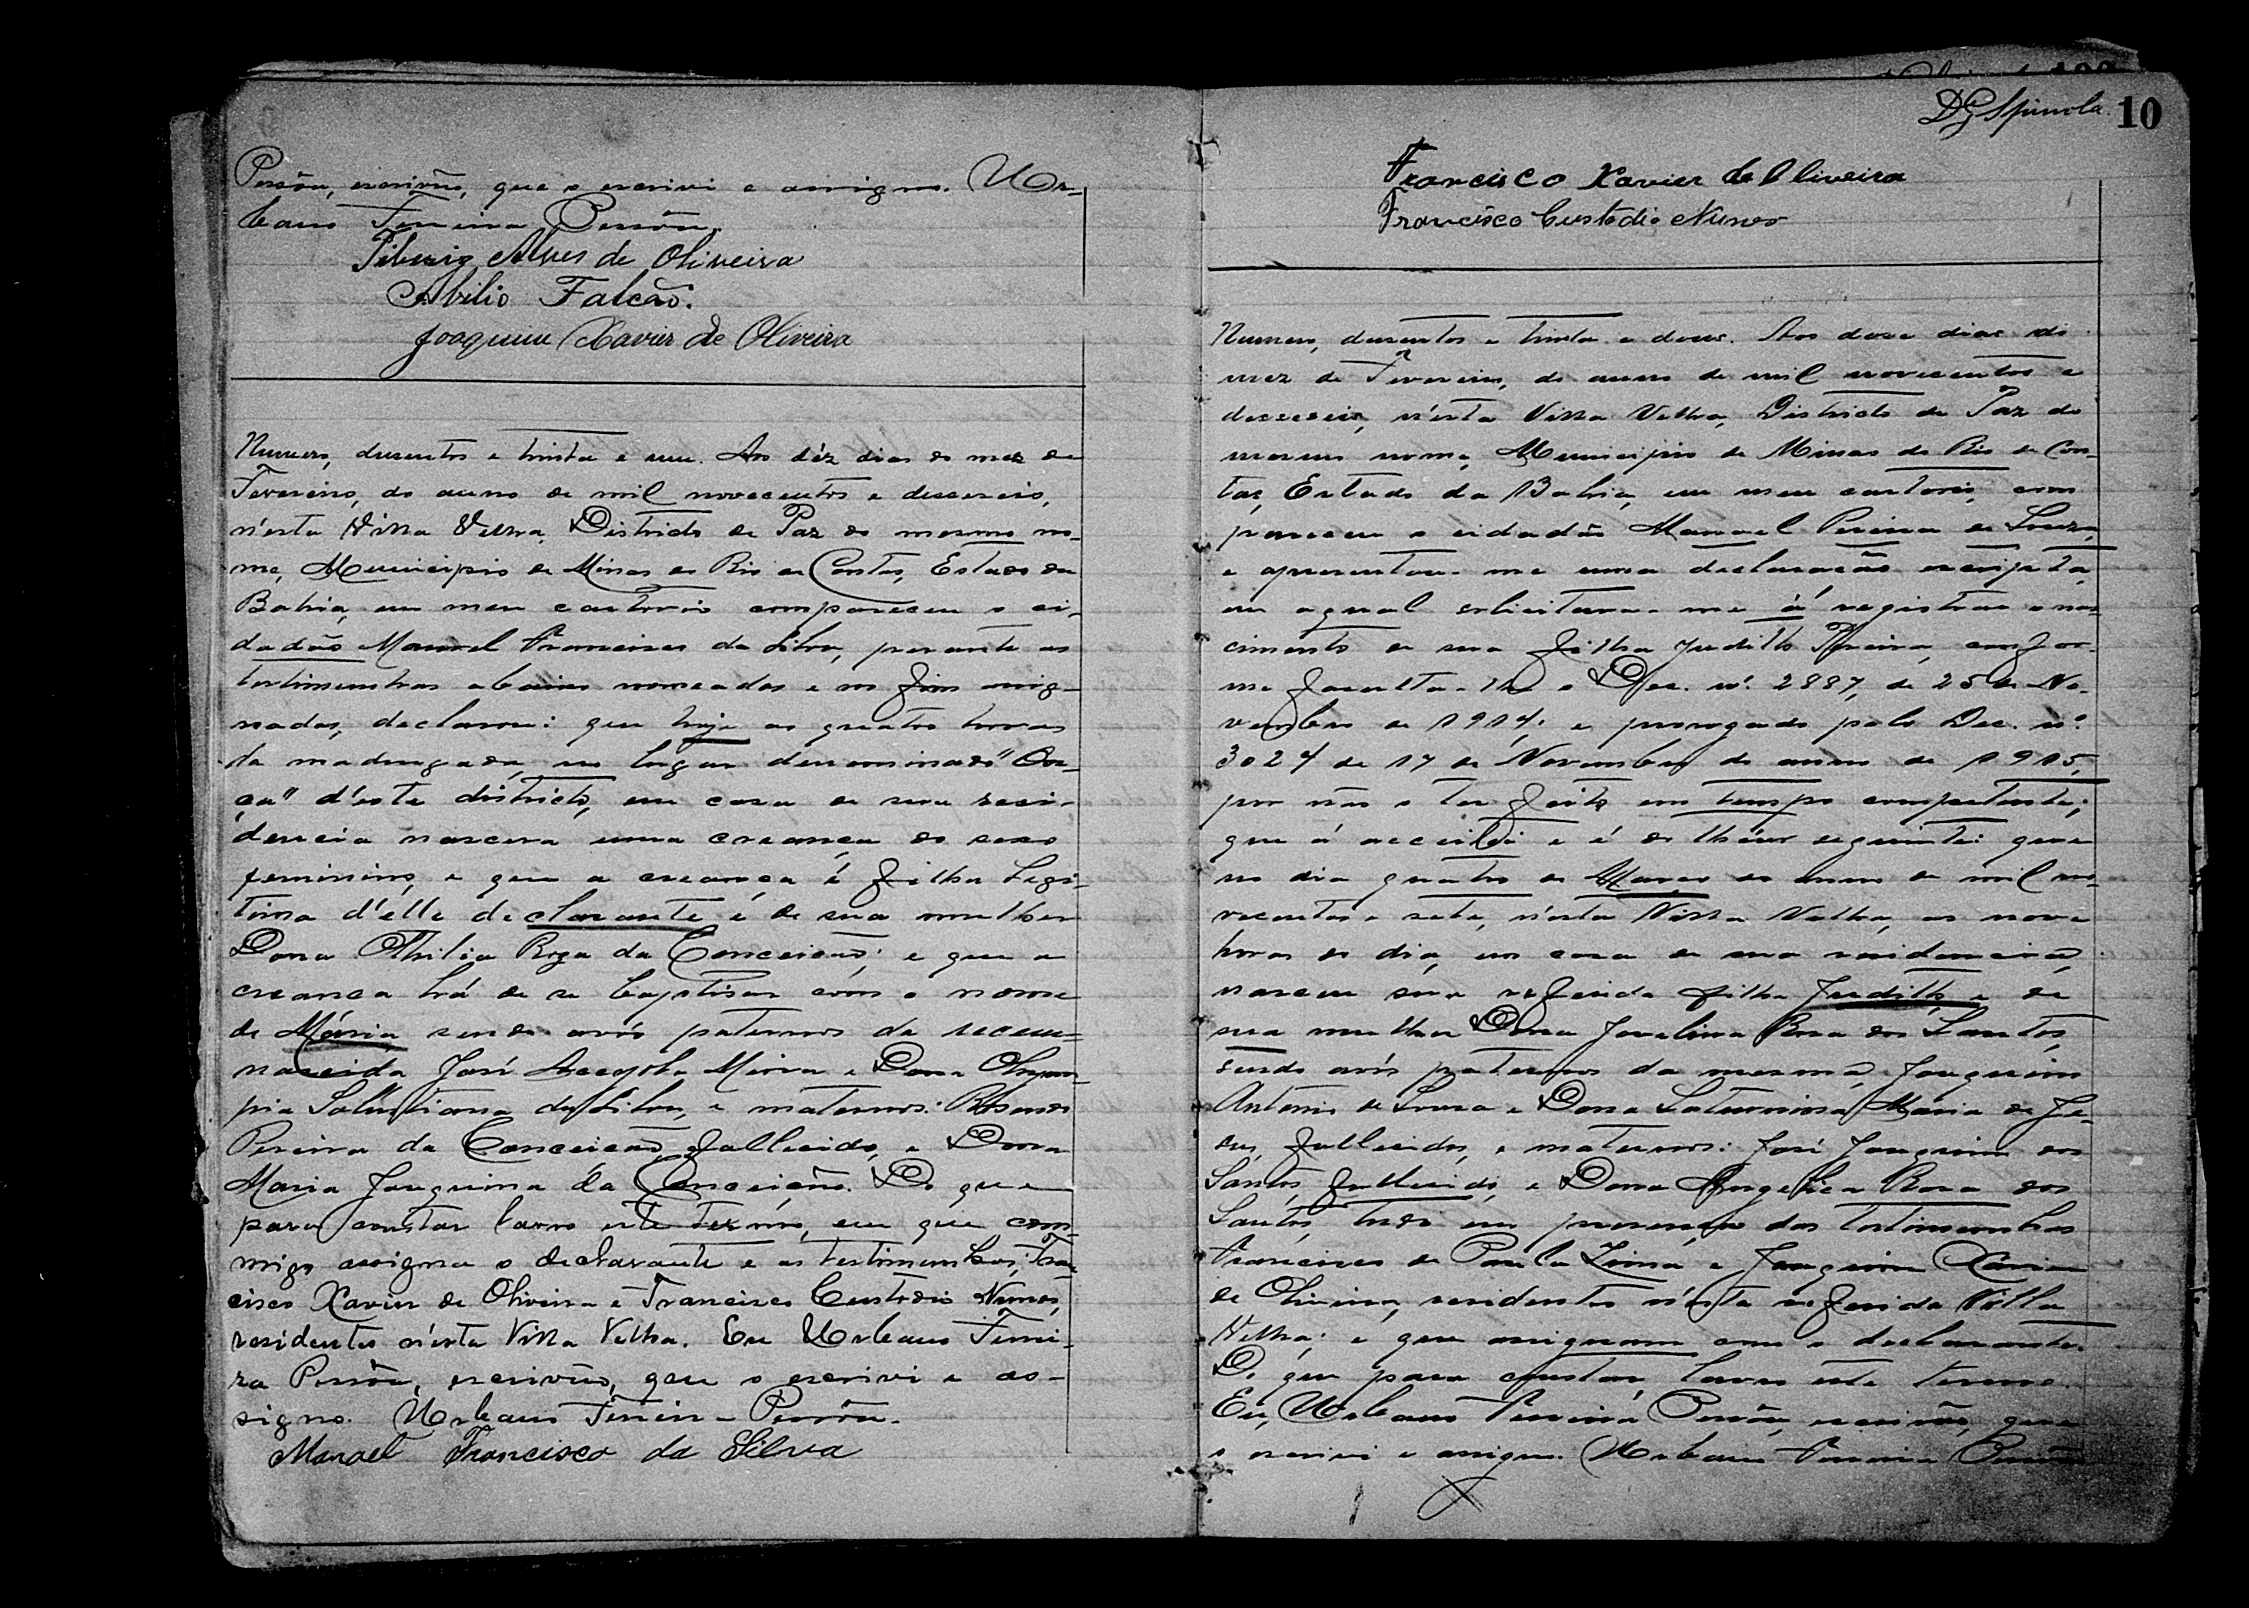 Pessôa, escrivão, que o escrivi e assigno. Ur-
bano Ferreira Pessôa.
Tiburcio Alves de Oliveira
Abilio Falcão.
Joaquim Xavier de Oliveira
Numero, duzentos e trinta e um. Aos déz dias do mez de
Fevereiro, do anno de mil novecentos e desseseis,
n'esta Villa Velha, Districto de Paz do mesmo no-
me, Municipio de Minas do Rio de Contas, Estado da
Bahia, em meu cartorio compareceu o ci-
dadão Manoel Francisco da Silva, perante as
testimunhas abaixo nomeadas e no fim assig-
nadas, declarou: que hoje as quatro horas
da madrugada, no lugar denominado
d'este districto, em casa de sua resi-
dencia nascera uma creança do sexo
feminino, e que a creança é filha Legi-
tima d'elle declarante e de sua mulher
Dona Othilia Roza da Conceicão; e que a
creança há de se baptisar com o nome
de Mária, sendo avós paternos da recem-
nascida José Dona Olym-
pia Salustiana da Silva, e maternos: Rosendo
Pereira da Conceicão, fallecido, e Dona
Maria Joaquina da Conceicão. Do que
para constar lavro este termo, em que com-
migo assigna o declarante e as testimunhas, Fran-
cisco Xavier de Oliveira e Francisco Custodio Nunes,
residentes n'esta Villa Velha. Eu Urbano Ferrei-
ra Pessôa, escrivão, que o escrivi e as-
signo. Urbano Ferreira Pessôa.
Manoel Francisco da Silva
10
D. G. Spinola
Francisco Xavier de Oliveira
Francisco Custodio Nunes
Numero, duzentos e trinta e dous. Aos doze dias do
mez de Fevereiro, do anno de mil novecentos e
desseseis, n'esta Villa Velha, Districto de Paz do
mesmo nome, Municipio de Minas do Rio de Con-
tas, Estado da Bahia, em meu cartorio, com-
pareceu o cidadão Manoel Pereira de Souza,
e apresentou-me uma declaração escripta,
em a qual solicitava-me á registrar o nas-
cimento de sua filha Judith Pereira, confor-
me faculta-lhe o Dec. nº. 2887, de 25 de No-
vembro de 1914; e prorogado pelo Dec. nº
3024 de 17 de Novembro do anno de 1915,
por não o ter feito em tempo competente;
que á acceitei e é do theôr seguinte: que
no dia quatro de Março do anno de mil no-
vecentos e sete, n'esta Villa Velha, as nove
horas do dia, em casa de sua residencia,
nasceu sua referida filha Judith, e de
sua mulher Dona Jovelina Rosa dos Santos,
sendo avós paternos da mesma, Joaquim
Antonio de Souza e Dona Saturnina Maria de Je-
sus, fallecidos, e maternos: José Joaquim dos
Santos, fallecido, e Dona Angelica Rosa dos
Santos, tudo em presença das testimunhas
Francisco de Paula Lima e Joaquim Xavier
de Oliveira, residentes n'esta referida Villa
Velha; e que assignam com o declarante.
Do que para constar, lavro este termo.
Eu, Urbano Ferreira Pessôa, escrivão, que
o escrivi e assigno. Urbano Ferreira Pessôa